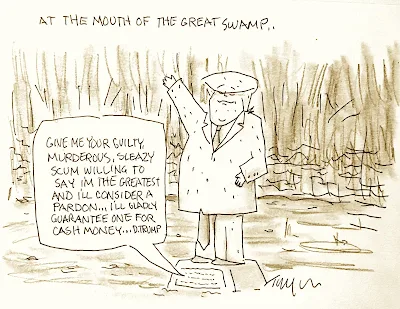 AT THE MOUTH OF THE GREAT SWAMP..
GIVE ME YOUR GUILTY,
MURDEROUS, SLEAZY
SCUM WILLING TO
SAY IM THE GREATEST
AND ILL CONSIDER A
PARDON... ILL GLADLY
GUARANTEE ONE FOR
CASH MONEY... D.TRUMP